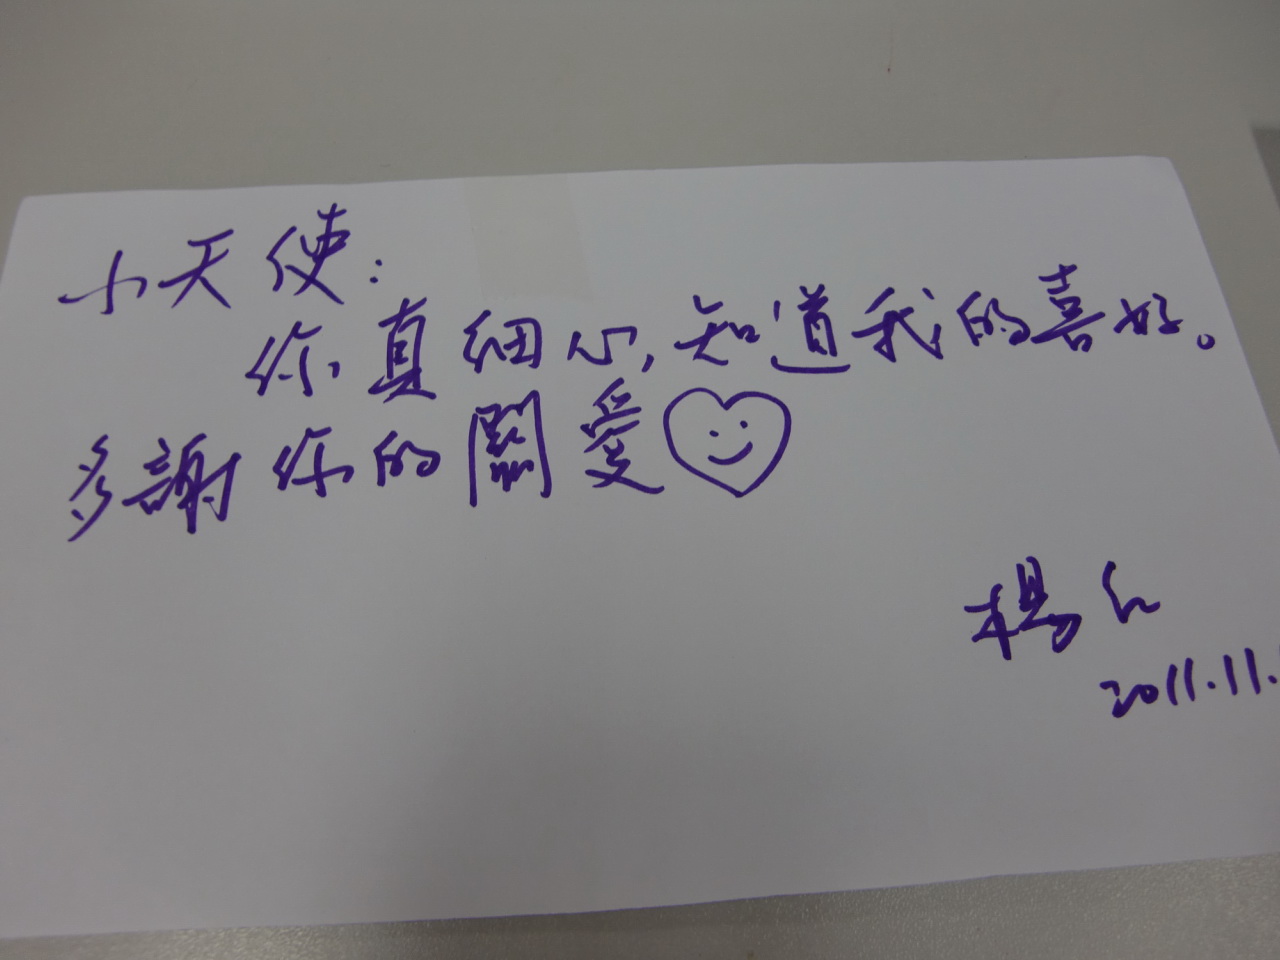 小天使:
你真細心,知道我的喜好。
多謝你的關愛
楊
2011.11.